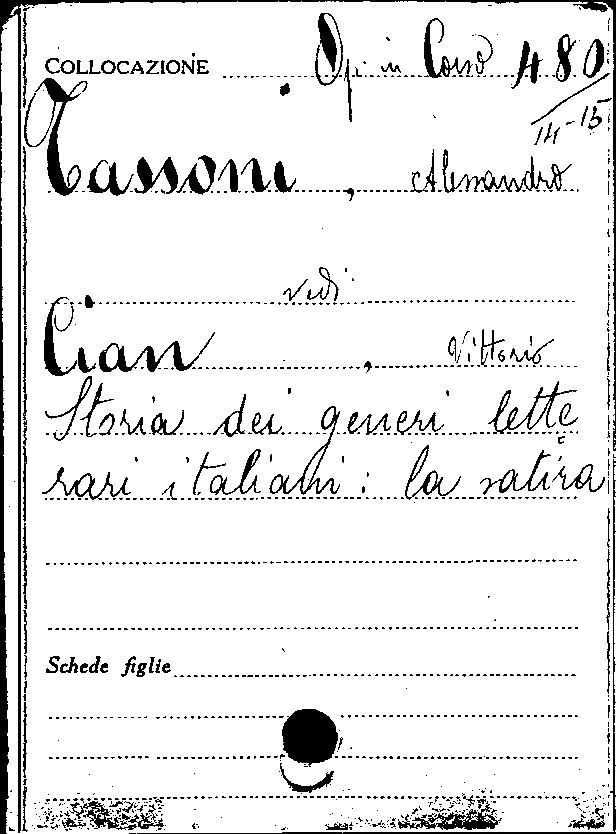 COLLOCAZIONE Op. in Corso 480
14-15
Tassoni, Alessandro
vedi
Cian, Vittorio
Storia dei generi lette
rari italiani: la satira
Schede figlie